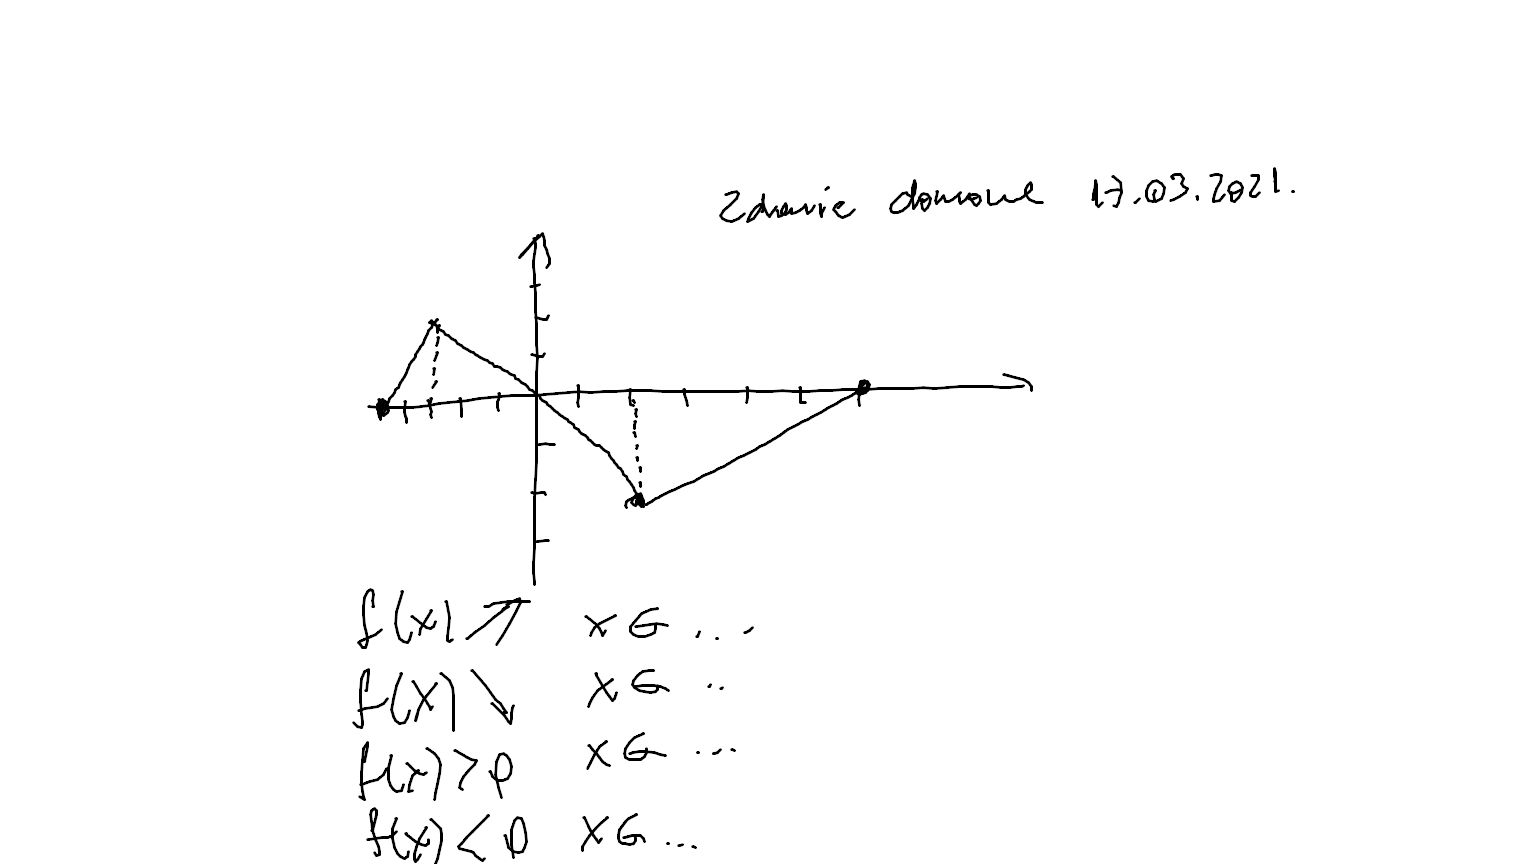 Zadanie domowe 17.03.2021.
f(x) ↗ x ∈ ...
f(x) ↘ x ∈ ..
f(x) > 0 x ∈ ...
f(x) < 0 x ∈ ...